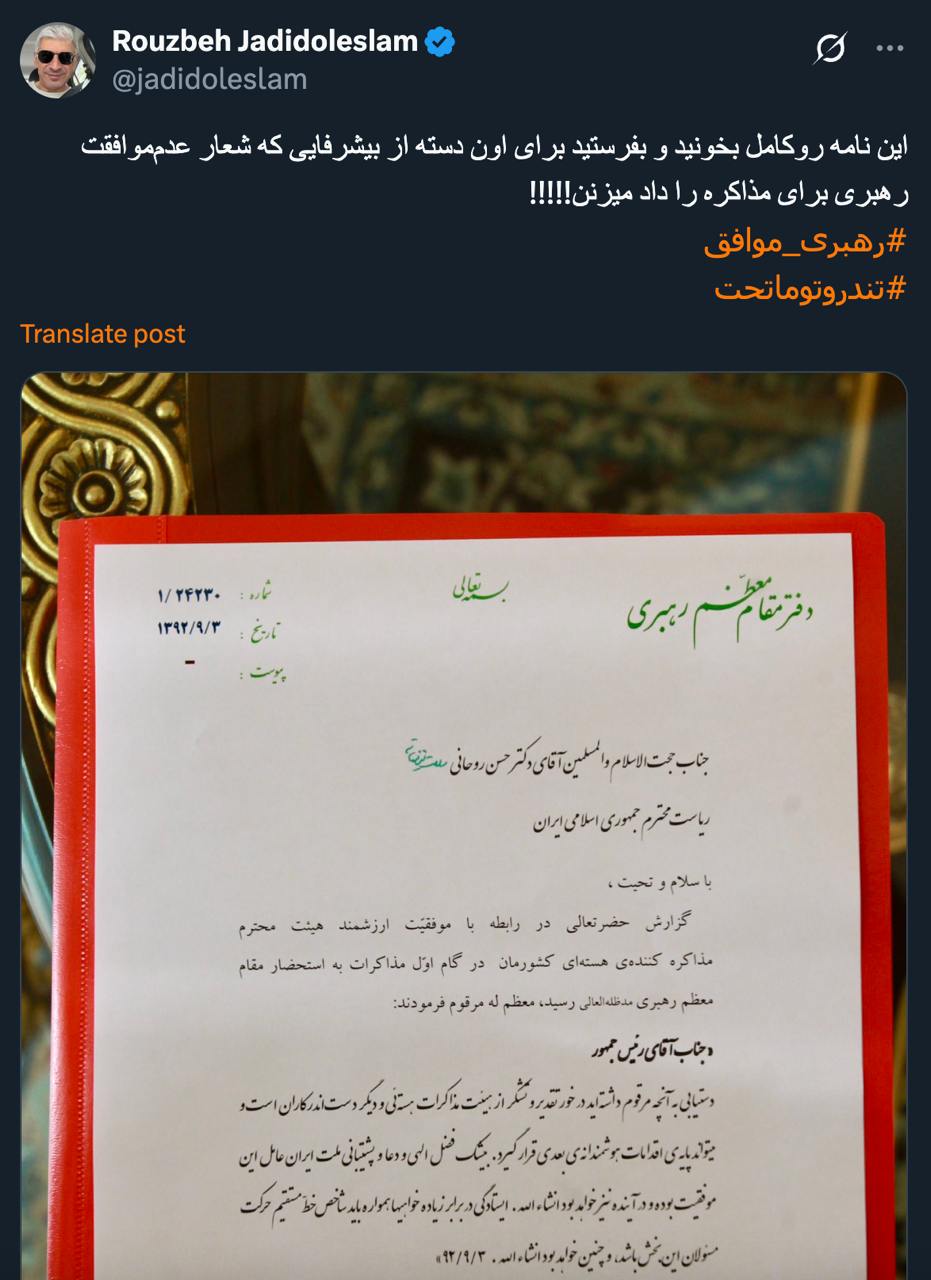 Rouzbeh Jadidoleslam
@jadidoleslam
این نامه روکامل بخونید و بفرستید برای اون دسته از بیشرفایی که شعار عدم‌موافقت
رهبری برای مذاکره را داد میزنن!!!!!
#رهبری_موافق
#تندروتوماتحت
Translate post
بسمه تعالی
دفتر مقام معظّم رهبری
شماره : ۱/ ۲۴۲۳۰
تاریخ : ۱۳۹۲/۹/۳
پیوست : -
جناب حجت‌الاسلام والمسلمین آقای دکتر حسن روحانی
ریاست محترم جمهوری اسلامی ایران
با سلام و تحیت ،
گزارش حضرتعالی در رابطه با موفقیّت ارزشمند هیئت محترم
مذاکره کننده‌ی هسته‌ای کشورمان در گام اوّل مذاکرات به استحضار مقام
معظم رهبری مدظله‌العالی رسید، معظم له مرقوم فرمودند:
«جناب آقای رئیس جمهور
دستیابی به آنچه مرقوم داشته‌اید در خور تقدیر و تشکر از هیئت مذاکرات هسته‌ئی و دیگر دست‌اندرکاران است و
میتواند پایه‌ی اقدامات هوشمندانه‌ی بعدی قرار گیرد. بیشک فضل الهی و دعا و پشتیبانی ملت ایران عامل این
موفقیت بوده و در آینده نیز خواهد بود انشاءالله. ایستادگی در برابر زیاده خواهیها همواره باید شاخص خطّ مستقیم حرکت
مسئولان این بخش باشد، و چنین خواهد بود انشاءالله. ۹۲/۹/۳»